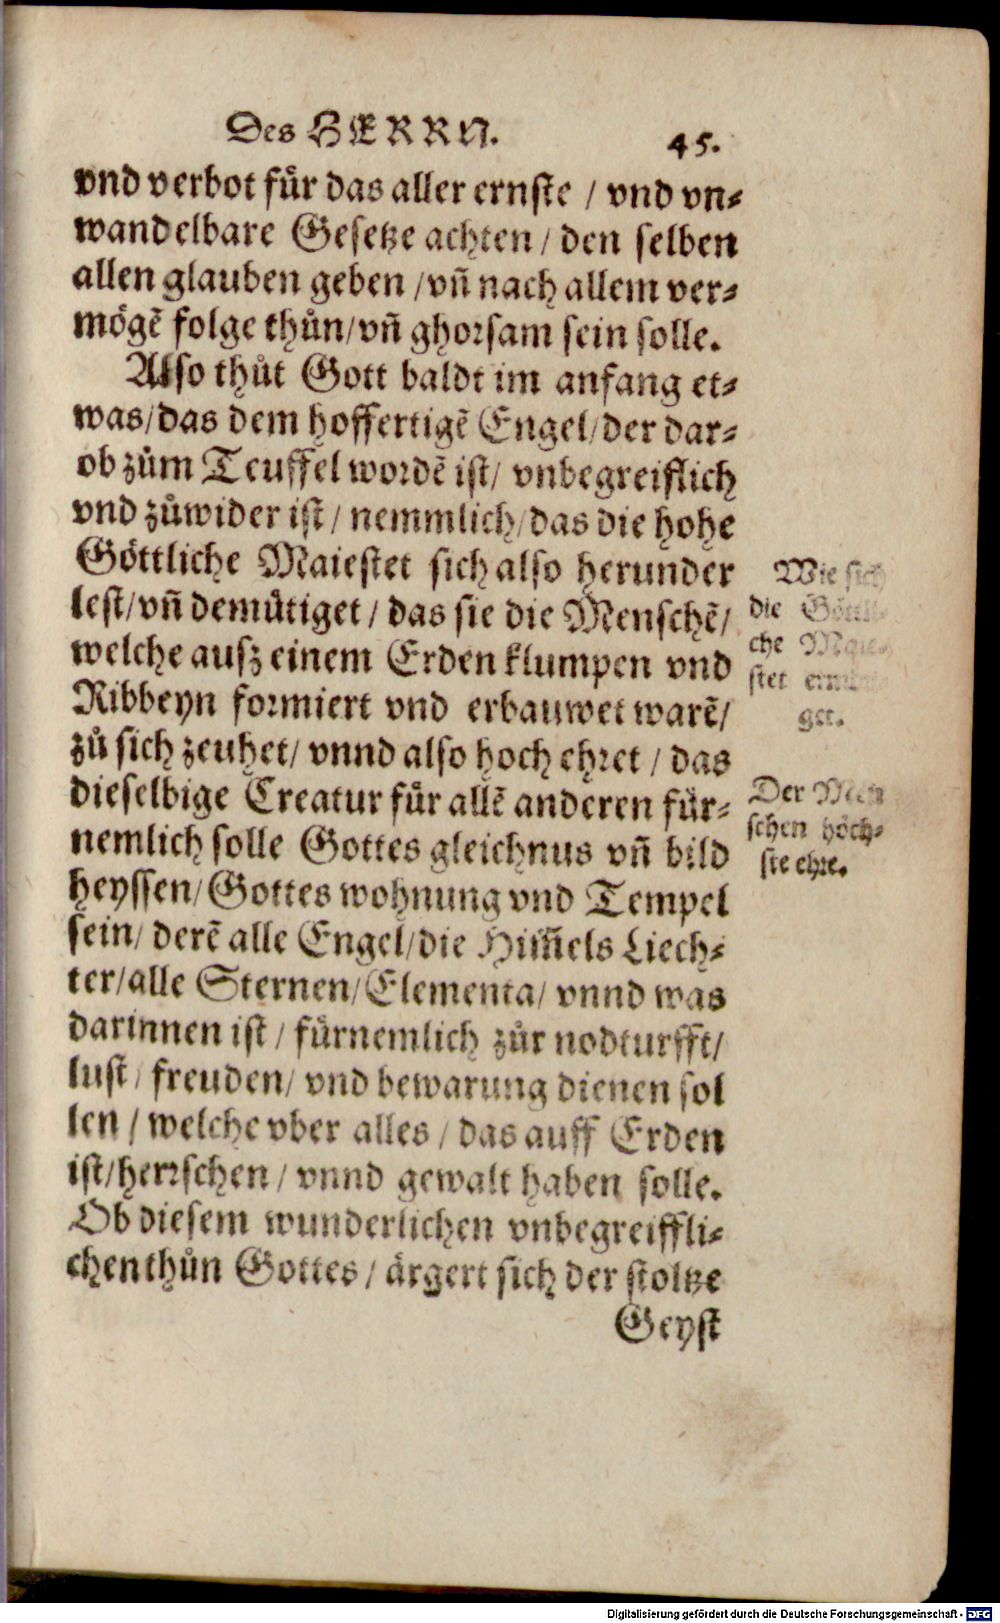 Des HERRN.
45.
vnd verbot fuͤr das aller ernste / vnd vn⸗
wandelbare Gesetze achten / den selben
allen glauben geben / vñ nach allem ver⸗
moͤgẽ folge thuͦn / vñ ghorsam sein solle.
Also thuͦt Gott baldt im anfang et⸗
was / das dem hoffertigẽ Engel / der dar⸗
ob zuͦm Teuffel wordẽ ist / vnbegreiflich
vnd zuͦwider ist / nemmlich / das die hohe
Goͤttliche Maiestet sich also herunder
lest / vñ demuͤtiget / das sie die Menschẽ /
welche ausz einem Erden klumpen vnd
Ribbeyn formiert vnd erbauwet warẽ /
zuͦ sich zeuhet / vnnd also hoch ehret / das
dieselbige Creatur fuͤr allẽ anderen fuͤr⸗
nemlich solle Gottes gleichnus vñ bild
heyssen / Gottes wohnung vnd Tempel
sein / derẽ alle Engel / die Him̃els Liech⸗
ter / alle Sternen / Elementa / vnnd was
darinnen ist / fuͤrnemlich zuͦr nodturfft /
lust / freuden / vnd bewarung dienen sol
len / welche vber alles / das auff Erden
ist / herrschen / vnnd gewalt haben solle.
Ob diesem wunderlichen vnbegreiffli⸗
chen thuͦn Gottes / aͤrgert sich der stoltze
Geyst
Wie sich
die Goͤttli⸗
che Maie⸗
stet
get.
Der Men
schen hoͤch⸗
ste ehre.
Digitalisierung gefördert durch die Deutsche Forschungsgemeinschaft - DFG